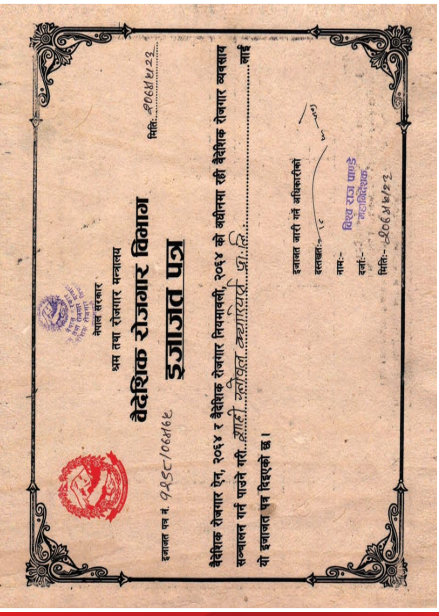 नेपाल सरकार
श्रम तथा रोजगार मन्त्रालय
वैदेशिक रोजगार विभाग
इजाजत पत्र
इजाजत पत्र नं.
मिति:-
वैदेशिक रोजगार ऐन, २०६४ र वैदेशिक रोजगार नियमावली, २०६४ को अधीनमा रही वैदेशिक रोजगार व्यवसाय
सञ्चालन गर्न पाउने गरी प्रा.लि. लाई
यो इजाजत पत्र दिइएको छ ।
इजाजत जारी गर्ने अधिकारीको
दस्तखत:-
नाम:- विश्व राज पाण्डे
दर्जा:- महानिर्देशक
मिति:-